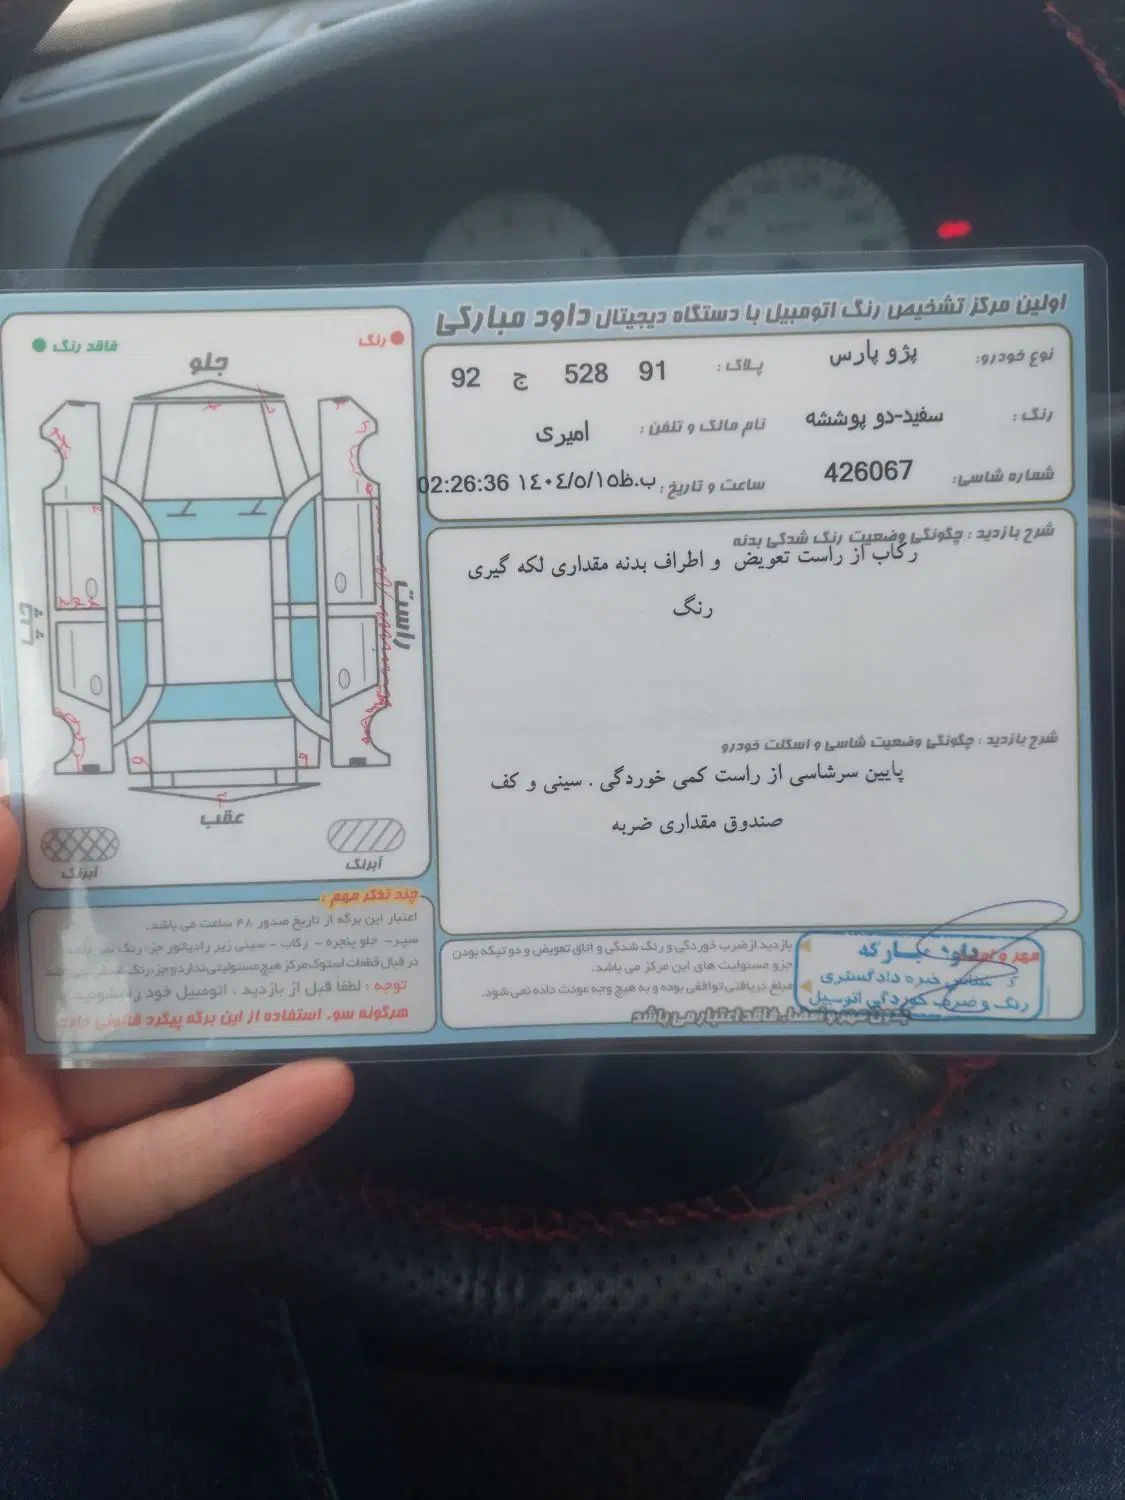 اولین مرکز تشخیص رنگ اتومبیل با دستگاه دیجیتال داود مبارکی
نوع خودرو: پژو پارس
پلاک: 92 ج 528 91
رنگ: سفید-دو پوششه
نام مالک و تلفن: امیری
شماره شاسی: 426067
ساعت و تاریخ: 02:26:36 ١٤٠٤/٥/١٥ ب.ظ
شرح بازدید: چگونگی وضعیت رنگ شدگی بدنه
رکاب از راست تعویض و اطراف بدنه مقداری لکه گیری
رنگ
شرح بازدید: چگونگی وضعیت شاسی و اسکلت خودرو
پایین سرشاسی از راست کمی خوردگی . سینی و کف
صندوق مقداری ضربه
رنگ
فاقد رنگ
جلو
راست
چپ
عقب
آبرنگ
آبرنگ
چند تذکر مهم:
اعتبار این برگه از تاریخ صدور ۴۸ ساعت می باشد.
سپر- جلو پنجره - رکاب - سینی زیر رادیاتور جزء رنگ
در قبال قطعات استوک مرکز هیچ مسئولیتی ندارد و جزء رنگ
توجه: لطفا قبل از بازدید، اتومبیل خود را بشوئید.
هرگونه سوء استفاده از این برگه پیگرد قانونی دارد
بازدید از ضرب خوردگی و رنگ شدگی و اتاق تعویض و دو تیکه بودن
جزو مسئولیت های این مرکز می باشد.
مبلغ دریافتی توافقی بوده و به هیچ وجه عودت داده نمی شود.
بدون مهر و امضاء فاقد اعتبار می باشد
مهر و امضاء
داود مبارکه
خبره دادگستری
رنگ و ضرب خوردگی اتومبیل